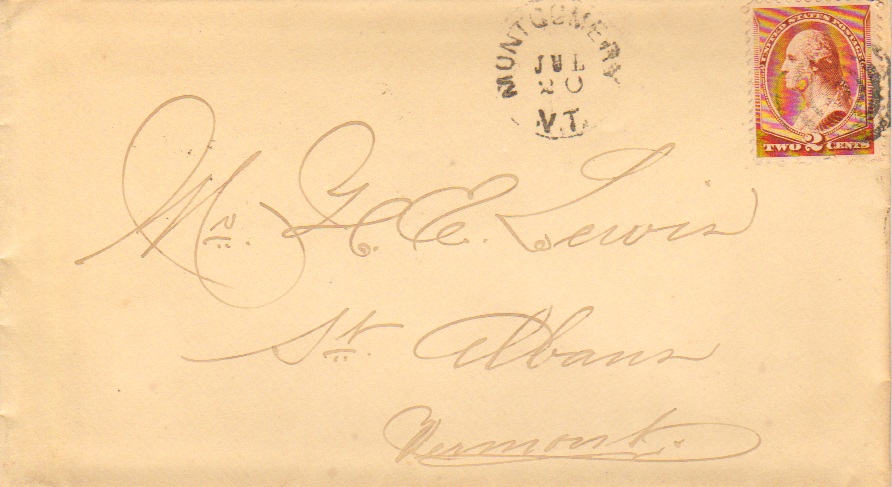 MONTGOMERY
JUL
20
VT.
UNITED STATES POSTAGE
TWO 2 CENTS
Mr. H. E. Lewis
St. Albans
Vermont.